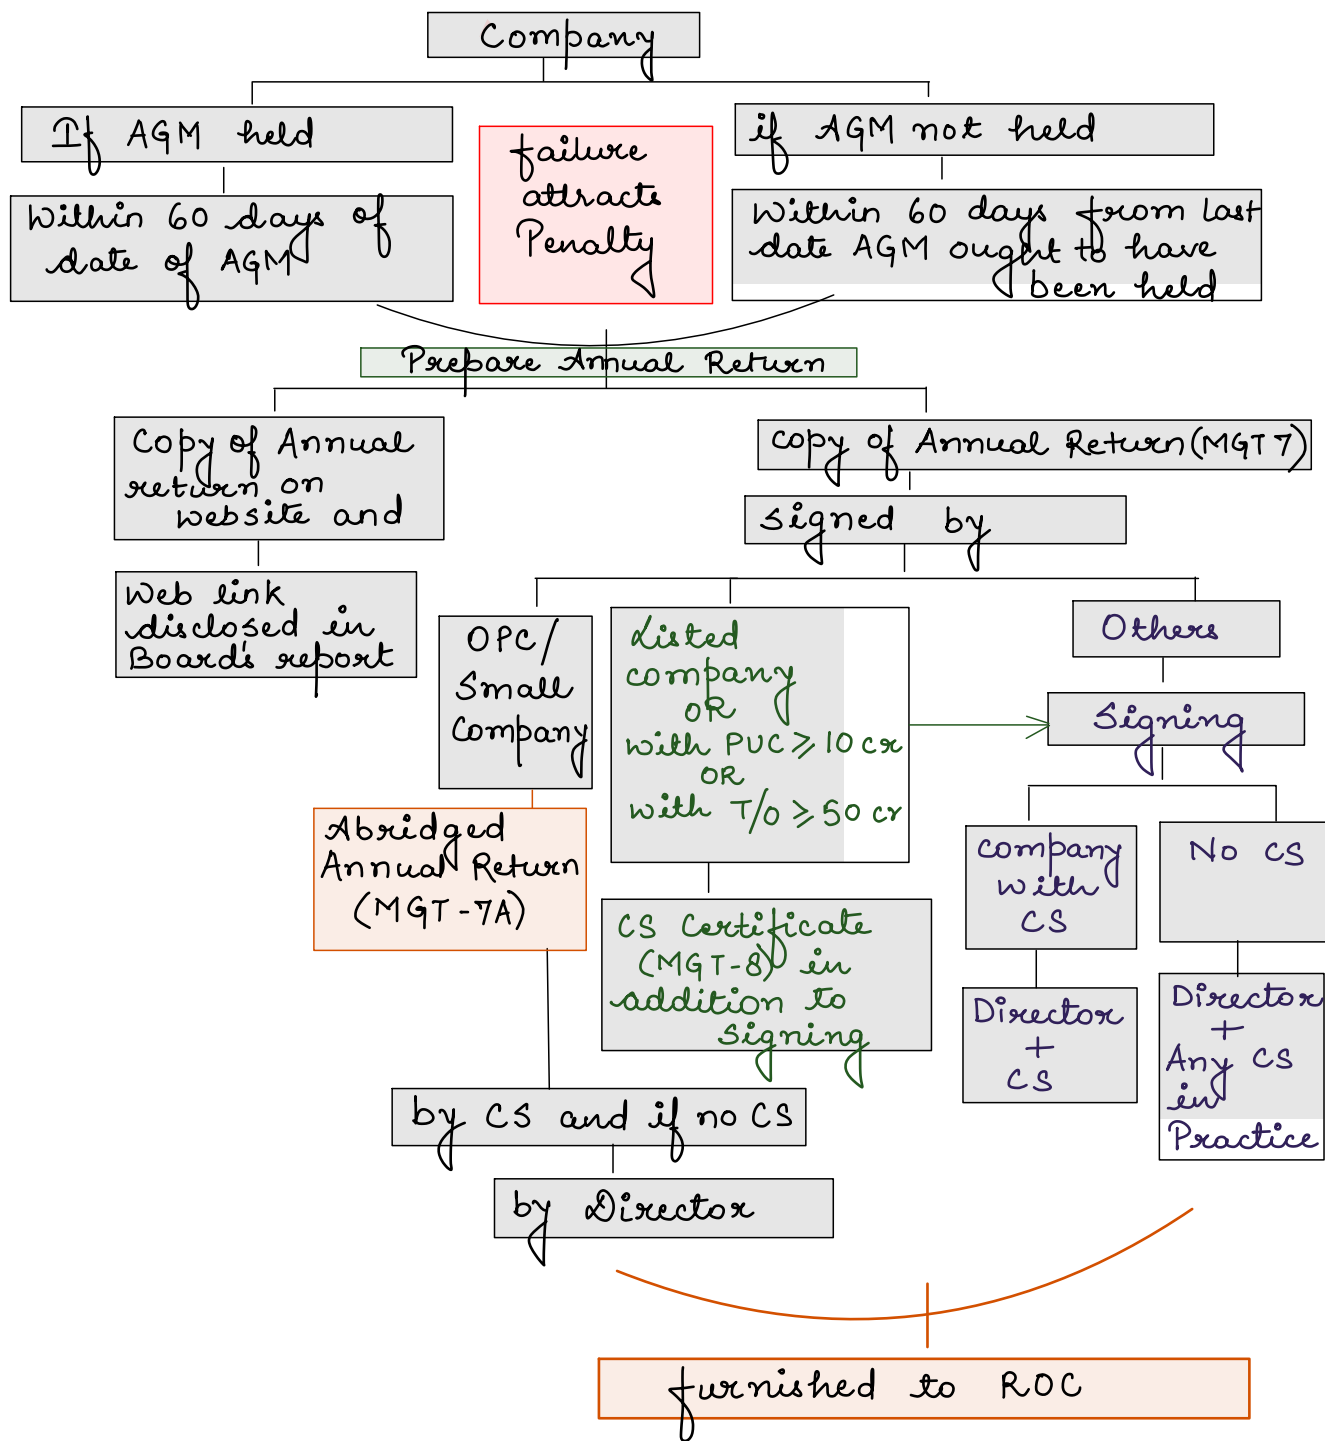 Company
If AGM held
Within 60 days of
date of AGM
failure
attracts
Penalty
if AGM not held
Within 60 days from last
date AGM ought to have
been held
Prepare Annual Return
Copy of Annual
return on
website and
Web link
disclosed in
Board's report
Copy of Annual Return (MGT 7)
Signed by
OPC/
Small
Company
Abridged
Annual Return
(MGT-7A)
by CS and if no CS
by Director
Listed
company
OR
with PUC ⩾ 10 cr
OR
with T/O ⩾ 50 cr
CS Certificate
(MGT-8) in
addition to
Signing
Others
Signing
Company
with
CS
Director
+
CS
No CS
Director
+
Any CS
in
Practice
furnished to ROC